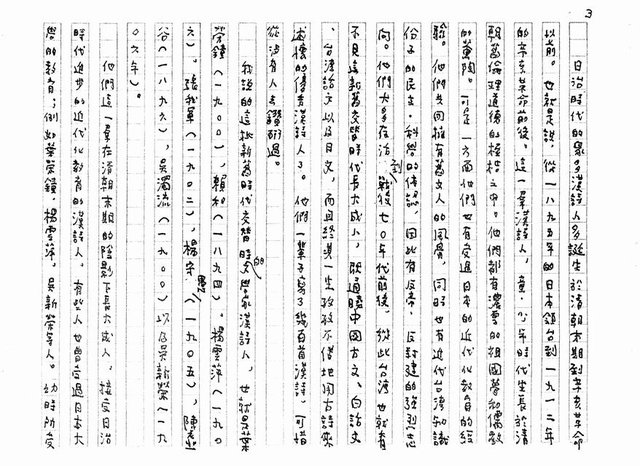 3
日治時代的眾多漢詩人多誕生於清朝末期到辛亥革命
以前。也就是說，從一八九五年的日本領台到一九一二年
的辛亥革命前後。這一羣漢詩人，童、少年時代生長於清
朝舊倫理道德的桎梏之中。他們都有濃厚的祖國夢和儒教
的薰陶。可是一方面他們也有受過日本的近代化教育的經
驗。他們共同擁有舊文人的風骨，同時也有近代台灣知識
份子的民主、科學的傳說，因此有反帝、反封建的強烈意
向。他們大多在活到戰後七〇年代前後，從此台灣也就看
不見這新舊交替時代長大成人，既通曉中國古文、白話文
、台灣話文以及日文，而且終其一生孜孜不倦地用古詩來
述懷的優秀漢詩人了。他們一輩子寫了幾百首漢詩，可惜
從沒有人去鑽研過。
我說的這批新舊時代交替時的文學家漢詩人，也就是葉
榮鐘（一九〇〇），賴和（一八九四）。楊雲萍（一九〇
六），張我軍（一九〇二），楊守愚（一九〇五），陳虛
谷（一八九六），吳濁流（一九〇〇）以及吳新榮（一九
〇六年）。
他們這一羣在清朝末期的陰影下長大成人，接受日治
時代進步的近代化教育的漢詩人，有些人也曾受過日本大
學的教育；例如葉榮鐘、楊雲萍、吳新榮等人。幼時所受